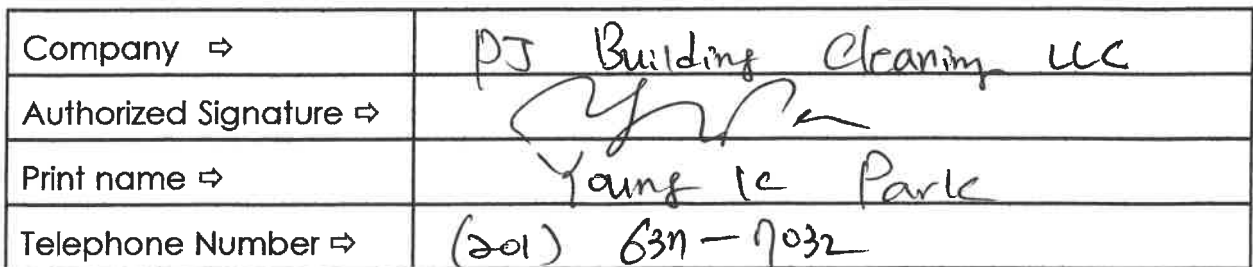 Company ⇨ PJ Building Cleaning LLC
Authorized Signature ⇨
Print name ⇨ Young Ic Park
Telephone Number ⇨ (201) 637-7032